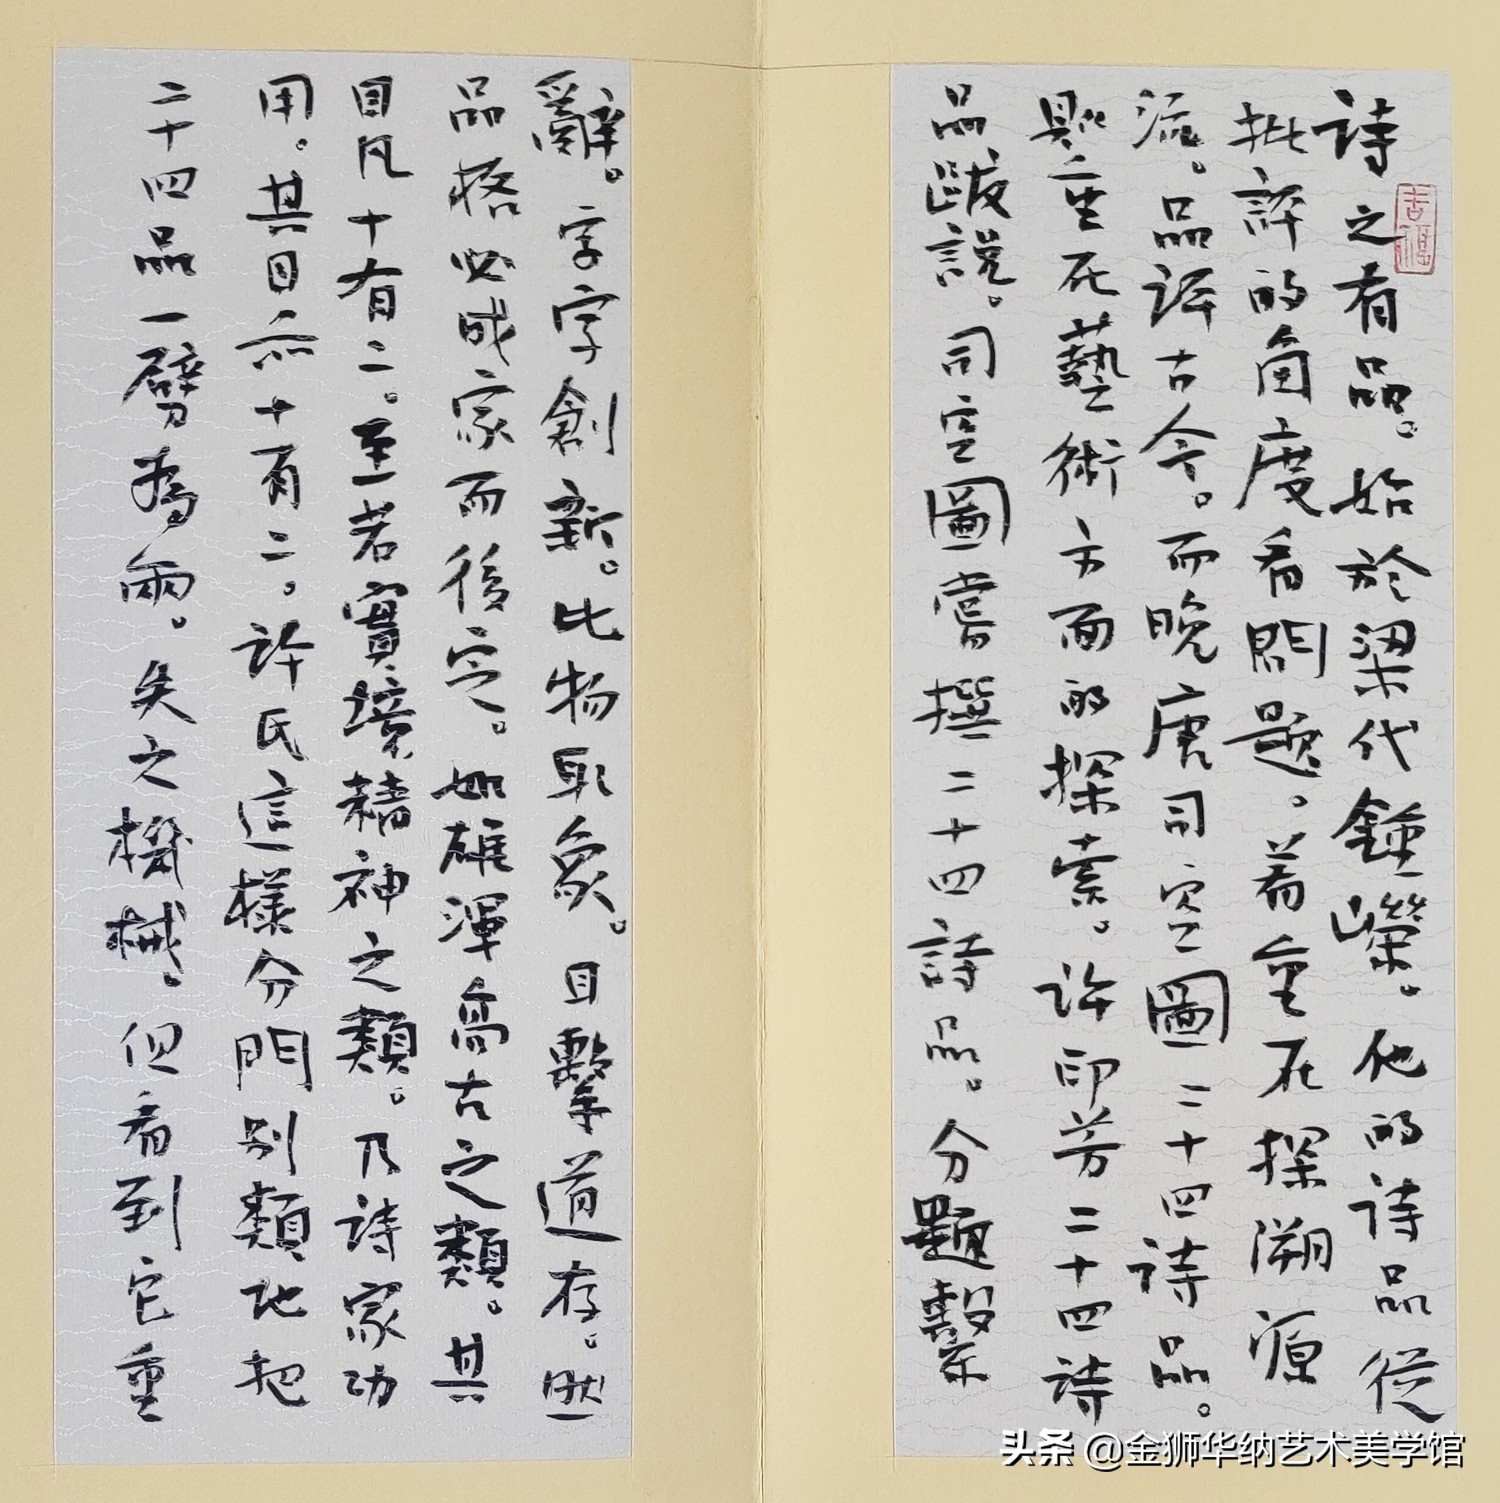 詩之有品。始於梁代鍾嶸。他的詩品從
批評的角度看問題。着重在探溯源
流。品評古今。而晚唐司空圖二十四詩品。
則重在藝術方面的探索。許印芳二十四詩
品跋說。司空圖嘗撰二十四詩品。分題繫
辭。字字創新。比物取象。目擊道存。然
品格必成家而後定。如雄渾高古之類。其
目凡十有二。至若實境精神之類。乃詩家功
用。其目亦十有二。許氏這樣分門別類地把
二十四品一劈為兩。失之機械。但看到它重
吉福
头条 @金狮华纳艺术美学馆